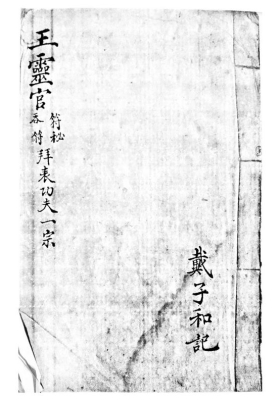 王靈官
符秘
吞符
拜表功夫一宗
戴子和記